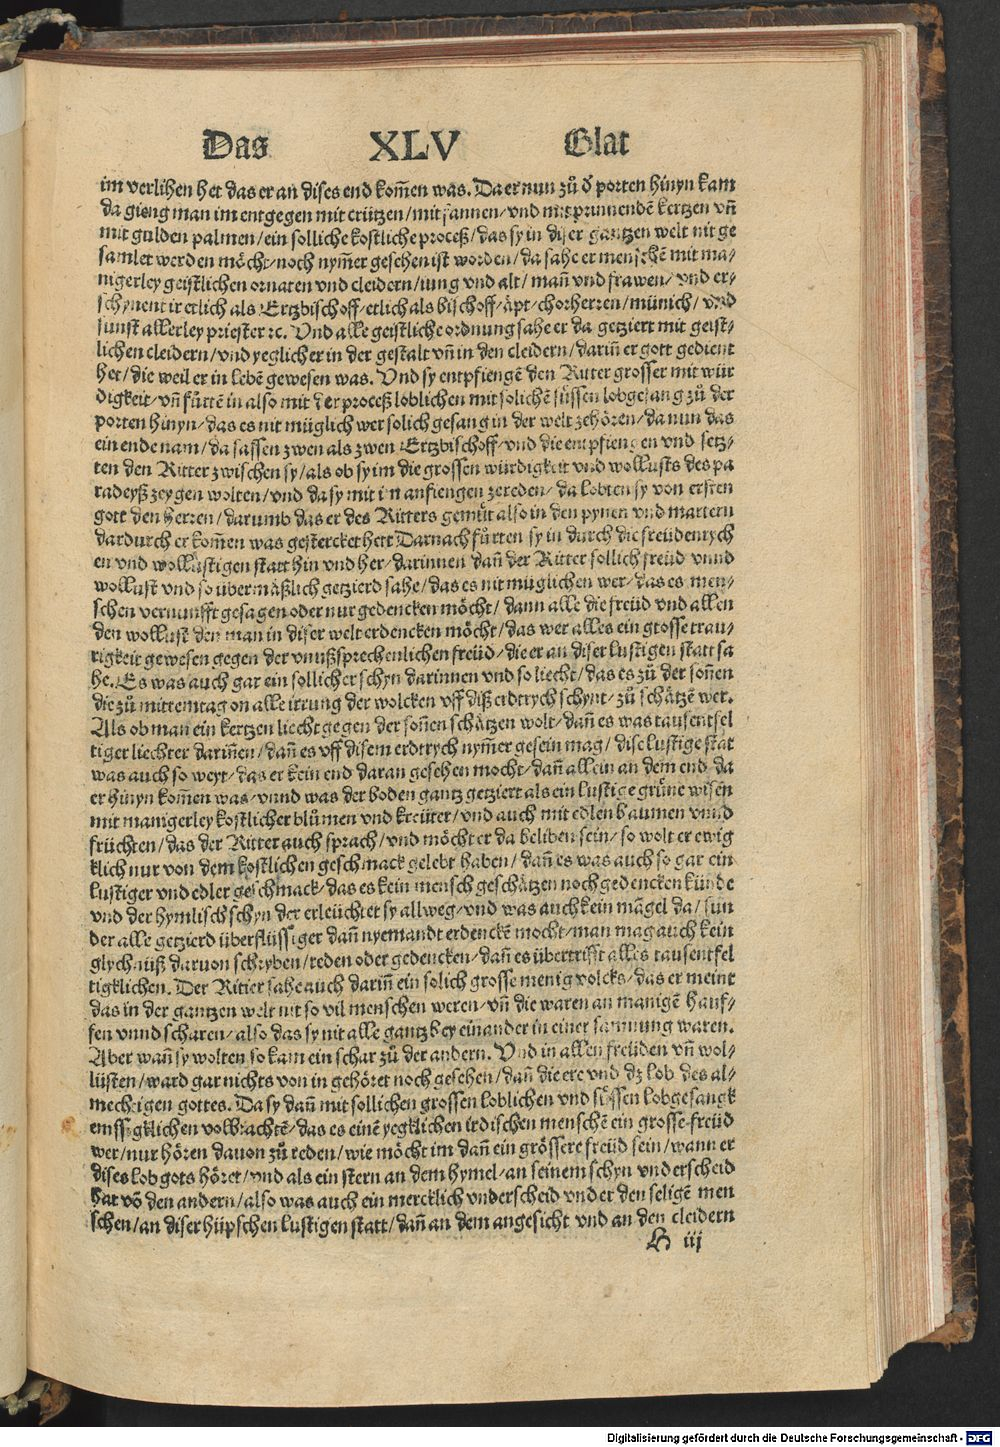 Das XLV Blat
im verlihen het das er an dises end kom̄en was. Da er nun zů d̄ porten hinyn kam
da gieng man im entgegen mit crützen/mit fannen/vnd mit prinnendē kertzen vn̄
mit gulden palmen/ein solliche kostliche proceß/das sy in diser gantzen welt nit ge
samlet werden möcht/noch nym̄er gesehen ist worden/da sahe er menschē mit ma⸗
nigerley geistlichen ornaten vnd cleidern/iung vnd alt/man̄ vnd frawen/vnd er⸗
schynent ir etlich als Ertzbischoff/etlich als bischoff/äpt/chorherren/münich/vnd
sunst allerley priester ꝛc. Vnd alle geistliche ordnung sahe er da getziert mit geist⸗
lichen cleidern/vnd yeglicher in der gestalt vn̄ in den cleidern/darin̄ er gott gedient
het/die weil er in lebē gewesen was. Vnd sy entpfiengē den Ritter grosser mit wür
digkeit/vn̄ fürtē in also mit der proceß loblichen mit solichē süssen lobgesang zů der
porten hinyn/das es nit müglich wer solich gesang in der welt zehören/da nun das
ein ende nam/da sassen zwen als zwen Ertzbischoff/vnd die entpfiengen vnd setz⸗
ten den Ritter zwischen sy/als ob sy im die grossen würdigkeit vnd wollusts des pa
radeyß zeygen wolten/vnd da sy mit im anfiengen zereden/da lobten sy von ersten
gott den herren/darumb das er des Ritters gemüt also in den pynen vnd martern
dardurch er kom̄en was gestercket hett Darnach fürten sy in durch die freüdenrych
en vnd wollustigen statt hin vnd her/darinnen dan̄ der Ritter sollich freüd vnnd
wollust vnd so übermäßlich getzierd sahe/das es nit müglichen wer/das es men⸗
schen vernunfft gesagen oder nur gedencken möcht/dann alle die freüd vnd allen
den wollust den man in diser welt erdencken möcht/das wer alles ein grosse trau⸗
rigkeit gewesen gegen der vnußsprechenlichen freüd/die er an diser lustigen statt sa
he. Es was auch gar ein sollicher schyn darinnen vnd so liecht/das es zů der son̄en
die zů mittemtag on alle irrung der wolcken vff diß erdtrych schynt/zů schätzē wer.
Als ob man ein kertzen liecht gegen der son̄en schätzen wolt/dan̄ es was tausentfel
tiger liechter darin̄en/dan̄ es vff disem erdtrych nym̄er gesein mag/dise lustige stat
was auch so weyt/das er kein end daran gesehen mocht/dan̄ allein an dem end/da
er hinyn kom̄en was/vnnd was der boden gantz getziert als ein lustige grüne wisen
mit manigerley kostlicher blůmen vnd kreüter/vnd auch mit edlen baumen vnnd
früchten/das der Ritter auch sprach/vnd möcht er da beliben sein/so wolt er ewig
klich nur von dem kostlichen geschmack gelebt haben/dan̄ es was auch so gar ein
lustiger vnd edler geschmack/das es kein mensch geschätzen noch gedencken künde
vnd der hymlisch schyn der erleüchtet sy allweg/vnd was auch kein māgel da/sun
der alle getzierd überflüssiger dan̄ nyemandt erdenckē mocht/man mag auch kein
glychnüß daruon schryben/reden oder gedencken/dan̄ es übertrifft alles tausentfel
tigklichen. Der Ritter sahe auch darin̄ ein solich grosse menig volcks/das er meint
das in der gantzen welt nit so vil menschen weren/vn̄ die waren an manigē hauf⸗
fen vnnd scharen/also das sy nit alle gantz bey einander in einer samnung waren.
Aber wan̄ sy wolten so kam ein schar zů der andern. Vnd in allen freüden vn̄ wol⸗
lüsten/ward gar nichts von in gehöret noch gesehen/dan̄ die ere vnd dz lob des al⸗
mechtigen gottes. Da sy dan̄ mit sollichen grossen loblichen vnd süssen lobgesangk
emssigklichen volbrachtē/das es einē yegklichen irdischen menschē ein grosse freüd
wer/nur hören dauon zů reden/wie möcht im dan̄ ein grössere freüd sein/wann er
dises lob gots höret/vnd als ein stern an dem hymel/an seinem schyn vnderscheid
hat vō den andern/also was auch ein mercklich vnderscheid vnder den seligē men
schen/an diser hüpschen lustigen statt/dan̄ an dem angesicht vnd an den cleidern
H iij
Digitalisierung gefördert durch die Deutsche Forschungsgemeinschaft - DFG